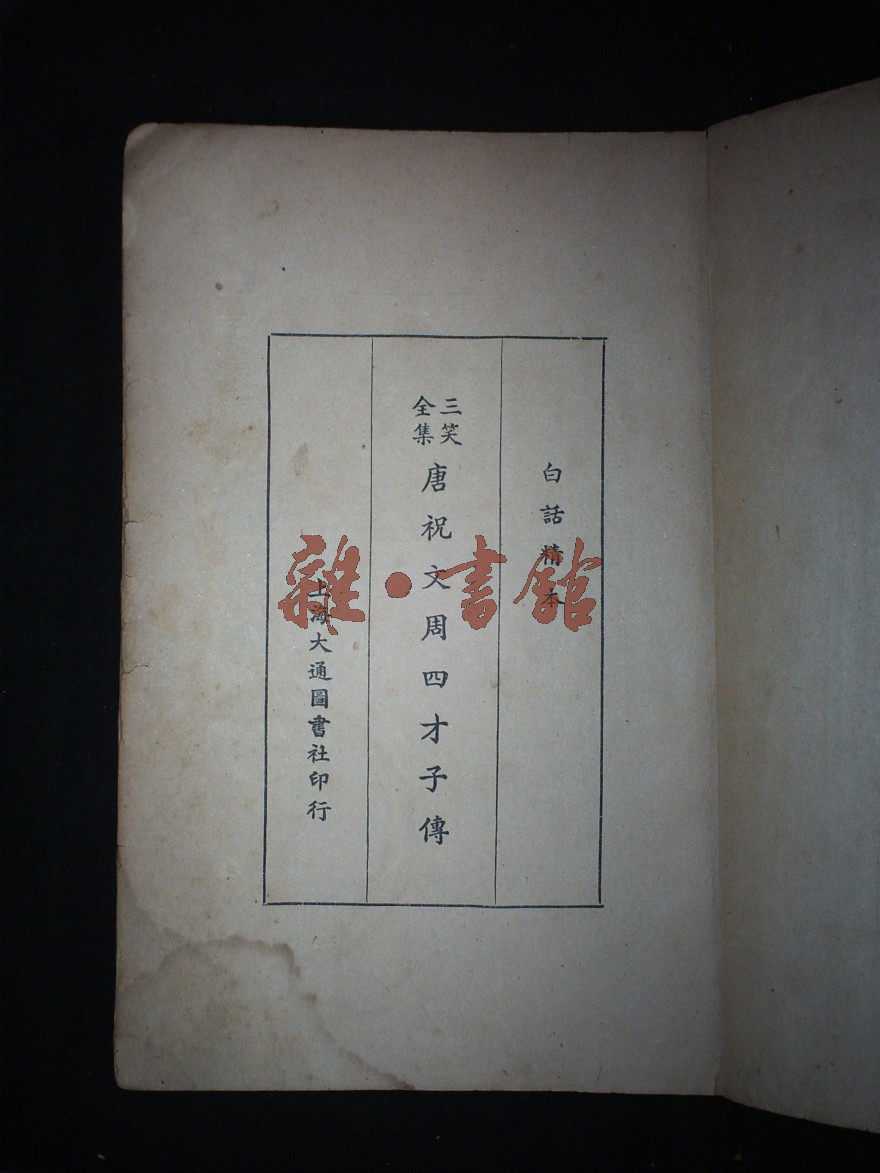 白話精本
三笑
全集
唐祝文周四才子傳
上海大通圖書社印行
雜·書館